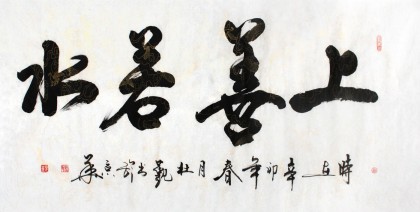 上善若水
時在辛卯年春月杜勤書於京華